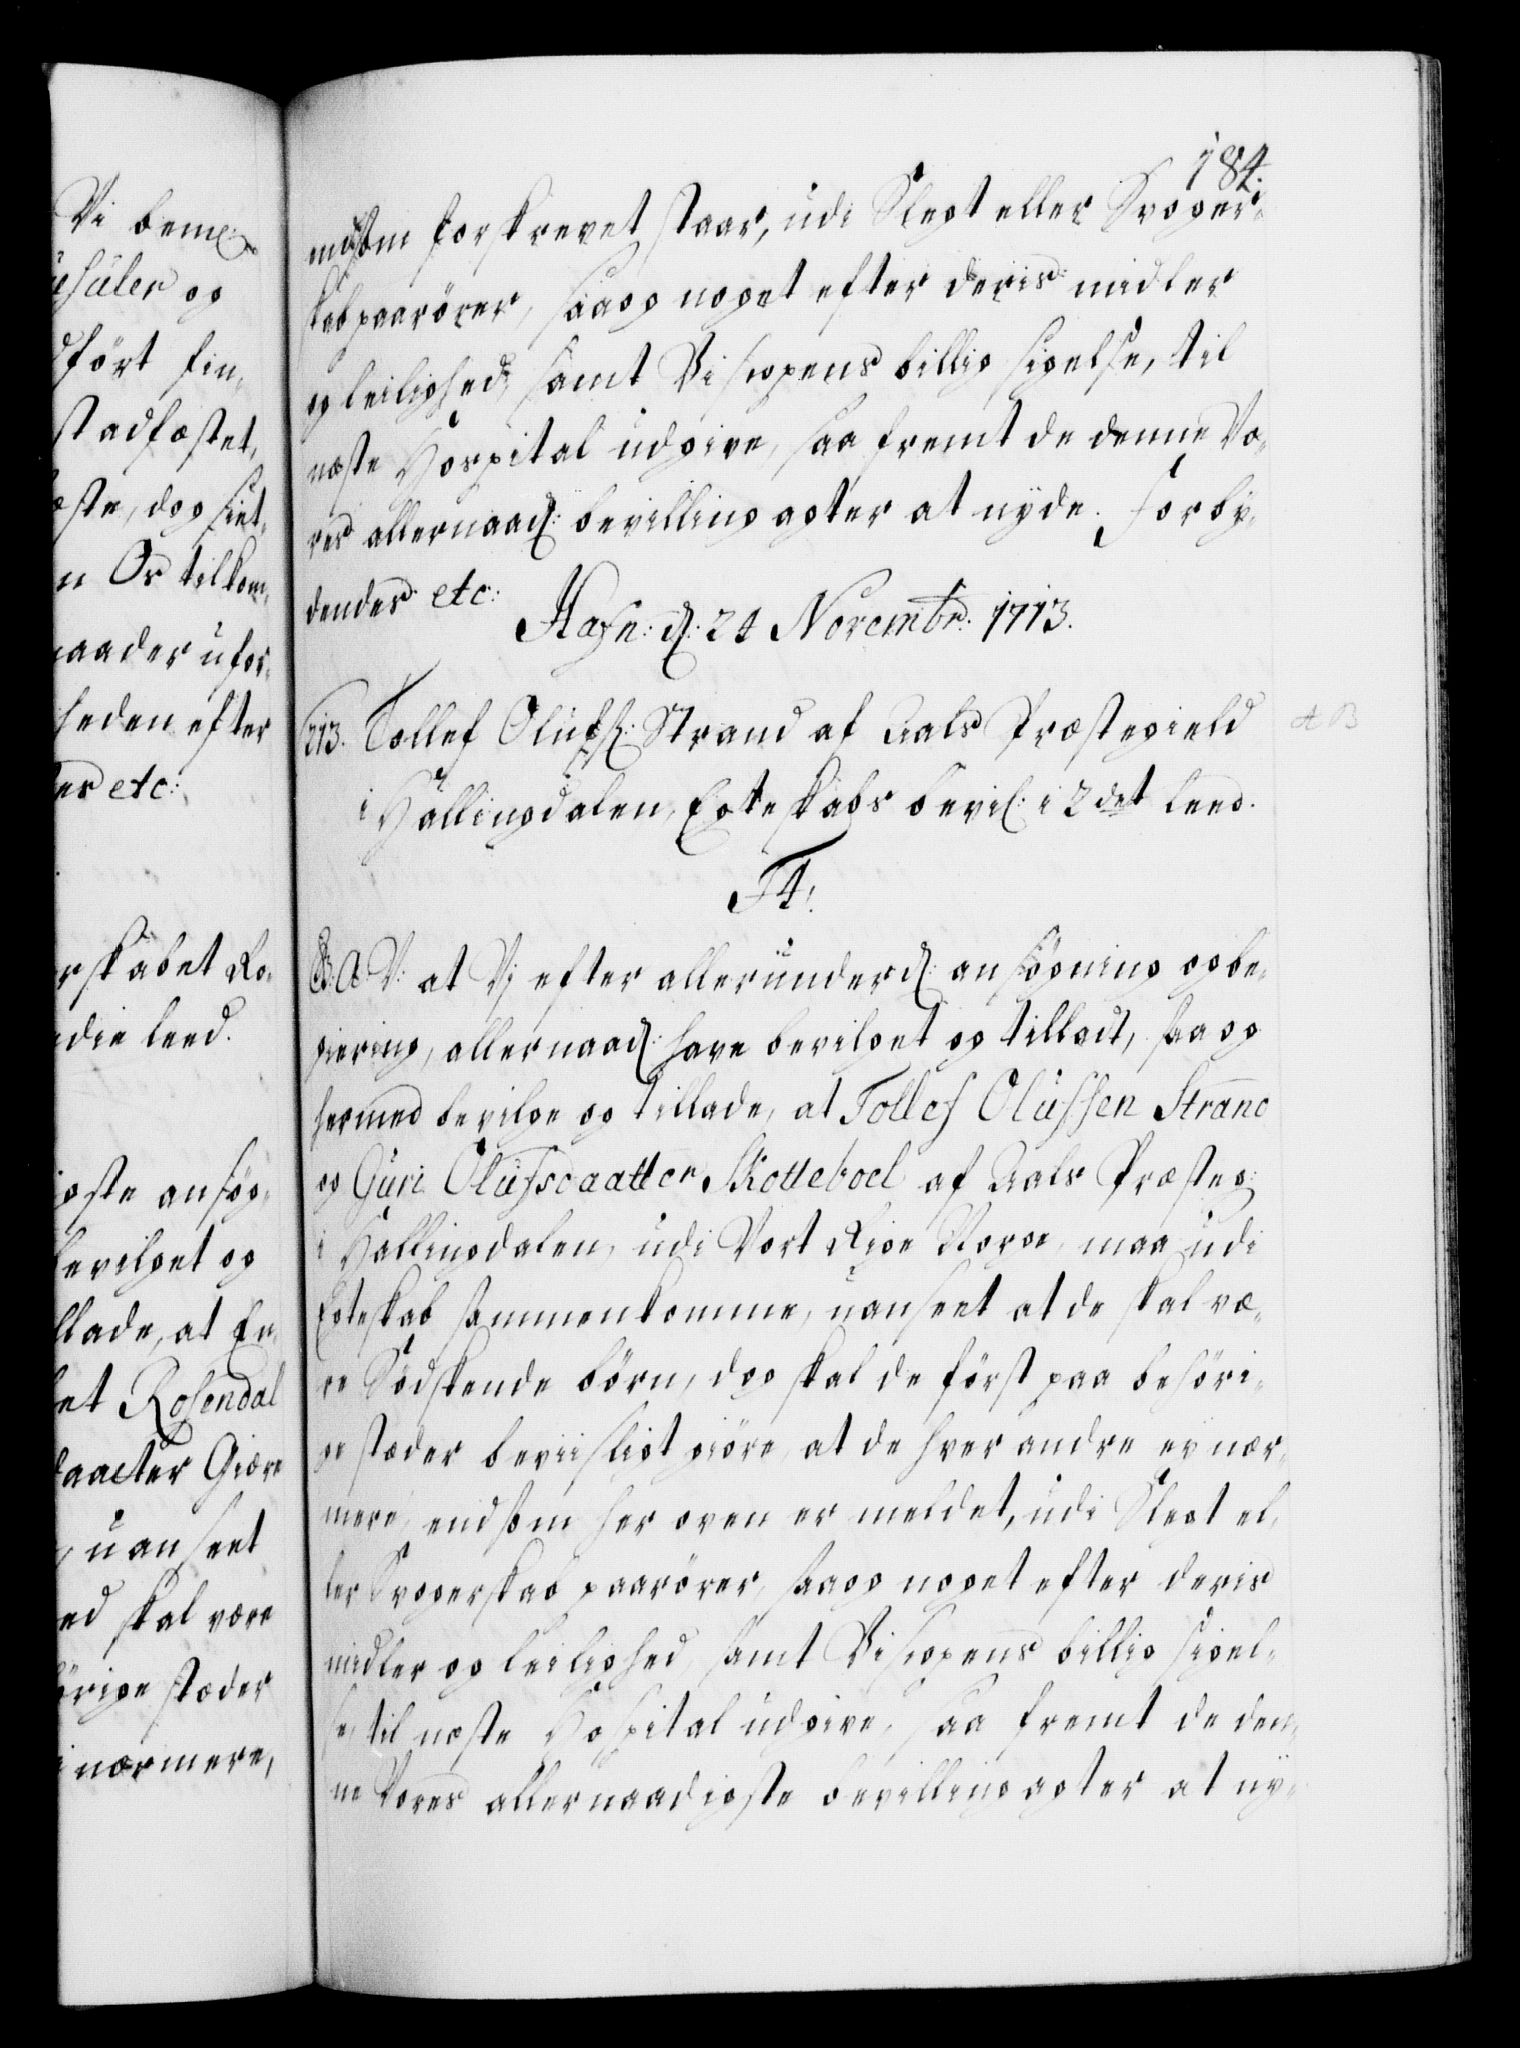 Vi bem:
husuler og
dført fin-
stadfæstet,
æste, dog
n Os tilkom-
maader ufor-
heden efter
des etc:
rskabet Ro-
edie leed.
igste ansøg-
bevilget og
llade, at En-
et Rosendal
daatter Giære
, uanseet
ed skal være
hørige stæder
i nærmere,
184.
endsom forskrevet staar, udi Slegt eller Svoger-
skab paarører, saa og noget efter deris midler
og leilighed, samt Biscopens billig sigelse, til
næste Hospital udgive, saa fremt de denne Vo-
res allernaad: bevilling agter at nyde. Forby-
dendes etc:
Hafn: d: 24 Novembr: 1713.
213. Tollef Olufs: Strand af Aals Præstegield
i Hallingdalen, Egteskabs bevil: i 2det leed.
F4!
G. A. V: at Vj efter allerunderd: ansøgning og be-
giering, allernaad: have bevilget og tilladt, saa og
hermed bevilge og tillade, at Tollef Olufsen Strand
og Guri Olufsdaatter Skotteboel af Aals Præsteg:
i Hallingdalen, udi Vort Rige Norge, maa udi
Egteskab sammenkomme, uanseet at de skal væ-
re Sødskende børn, dog skal de først paa behøri-
ge stæder beviisligt giøre, at de hver andre ey nær-
mere, end som her oven er meldet, udi Slegt el-
ler Svogerskab paarører, saa og noget efter deris
midler og leilighed, samt Biscopens billig sigel-
se, til næste Hospital udgive, saa fremt de den-
ne Vores allernaadigste bevilling agter at ny-